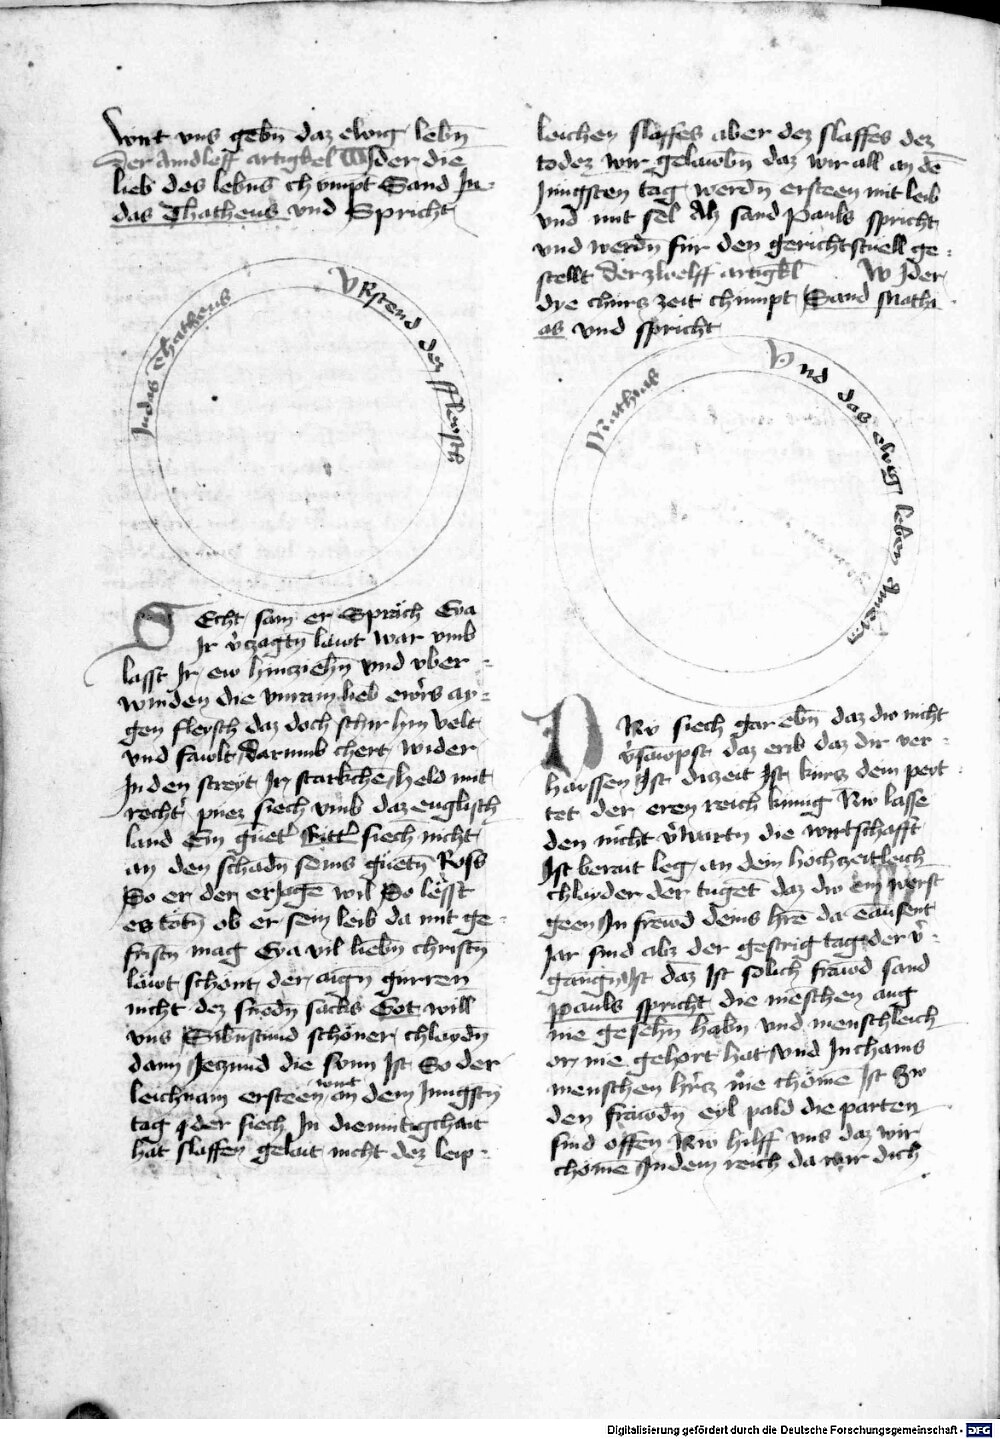 wirt vns gebn̄ daz ewig lebn̄
Der Aindleff artigkel Wider die
lieb des lebns chumpt Sand Ju-
das Thatheus vnd Spricht
Judas Thatheus
VRstend der ffleysch
SEcht sam er Spräch Eya
Ir v̉czagtn̄ läwt war vmb
lasst Ir ew hincziehn̄ vnd vber-
winden die vnram lieb ew̉rs ay-
gen fleysch daz doch schir hin velt
vnd fawlt darumb chert wider
In den streyt Ir starkchē held mit
recht̉ puez siech vmb daz englisch
land Ein guet̉ Ritt̉ siecht nicht
an den schadn̄ seins guetn̄ Ross
So er den erJagē wil So lësst
es tötn̄ ob er sein leib da mit ge-
fristn̄ mag Eya vil liebn̄ christn̄
läwt schönt der aign̄ gurren
nicht dez snödn̄ sacks Got will
vns Sibnstund schöner chlaydn̄
dann Jeczund die sunn Ist So der
leichnam ersteen wirt an dem Jungstn̄
tag der siech In diemutigchait
hat slaffen gelait nicht dez leip-
leichen slaffes aber dez slaffes dez
todez wir gelawbn̄ daz wir all an dē
Jungsten tag werdn̄ ersteen mit leib
vnd mit sel Alz sand Pauls spricht
vnd werdn̄ für den gerichtstuell ge-
stellt Der zwelff artigkl WIder
dye churz zeit chumpt Sand Mathi
as vnd spricht
Mathias
Vnd das ewig leben Amen
NRw siech gar ebn̄ daz dw nicht
v̉sawmpst daz erib daz dir ver-
haissen Ist dizeit Ist kurz dem peyt
tet der eren reich kunig Nw lasse
den nicht v̉wartn̄ die wirtschafft
Ist berait leg an dem hochzeitleich
chlayder der tugēt daz dw ein werst
geen In frewd deins hrē da Tausent
Jar sind alz der gestrig tag der v̉-
gangn̄ Ist daz Ist solich fräwd sand
pauls spricht die mēschen aug
nie gesehn̄ habn̄ vnd menschleich
or nie gehört hat vnd In chains
menschen hr̉cz nie chömē Ist Zw
den fräwdn̄ eyl pald die parten
sind offen Nw hilff vns daz wir
chömē Indem reich da wir dich